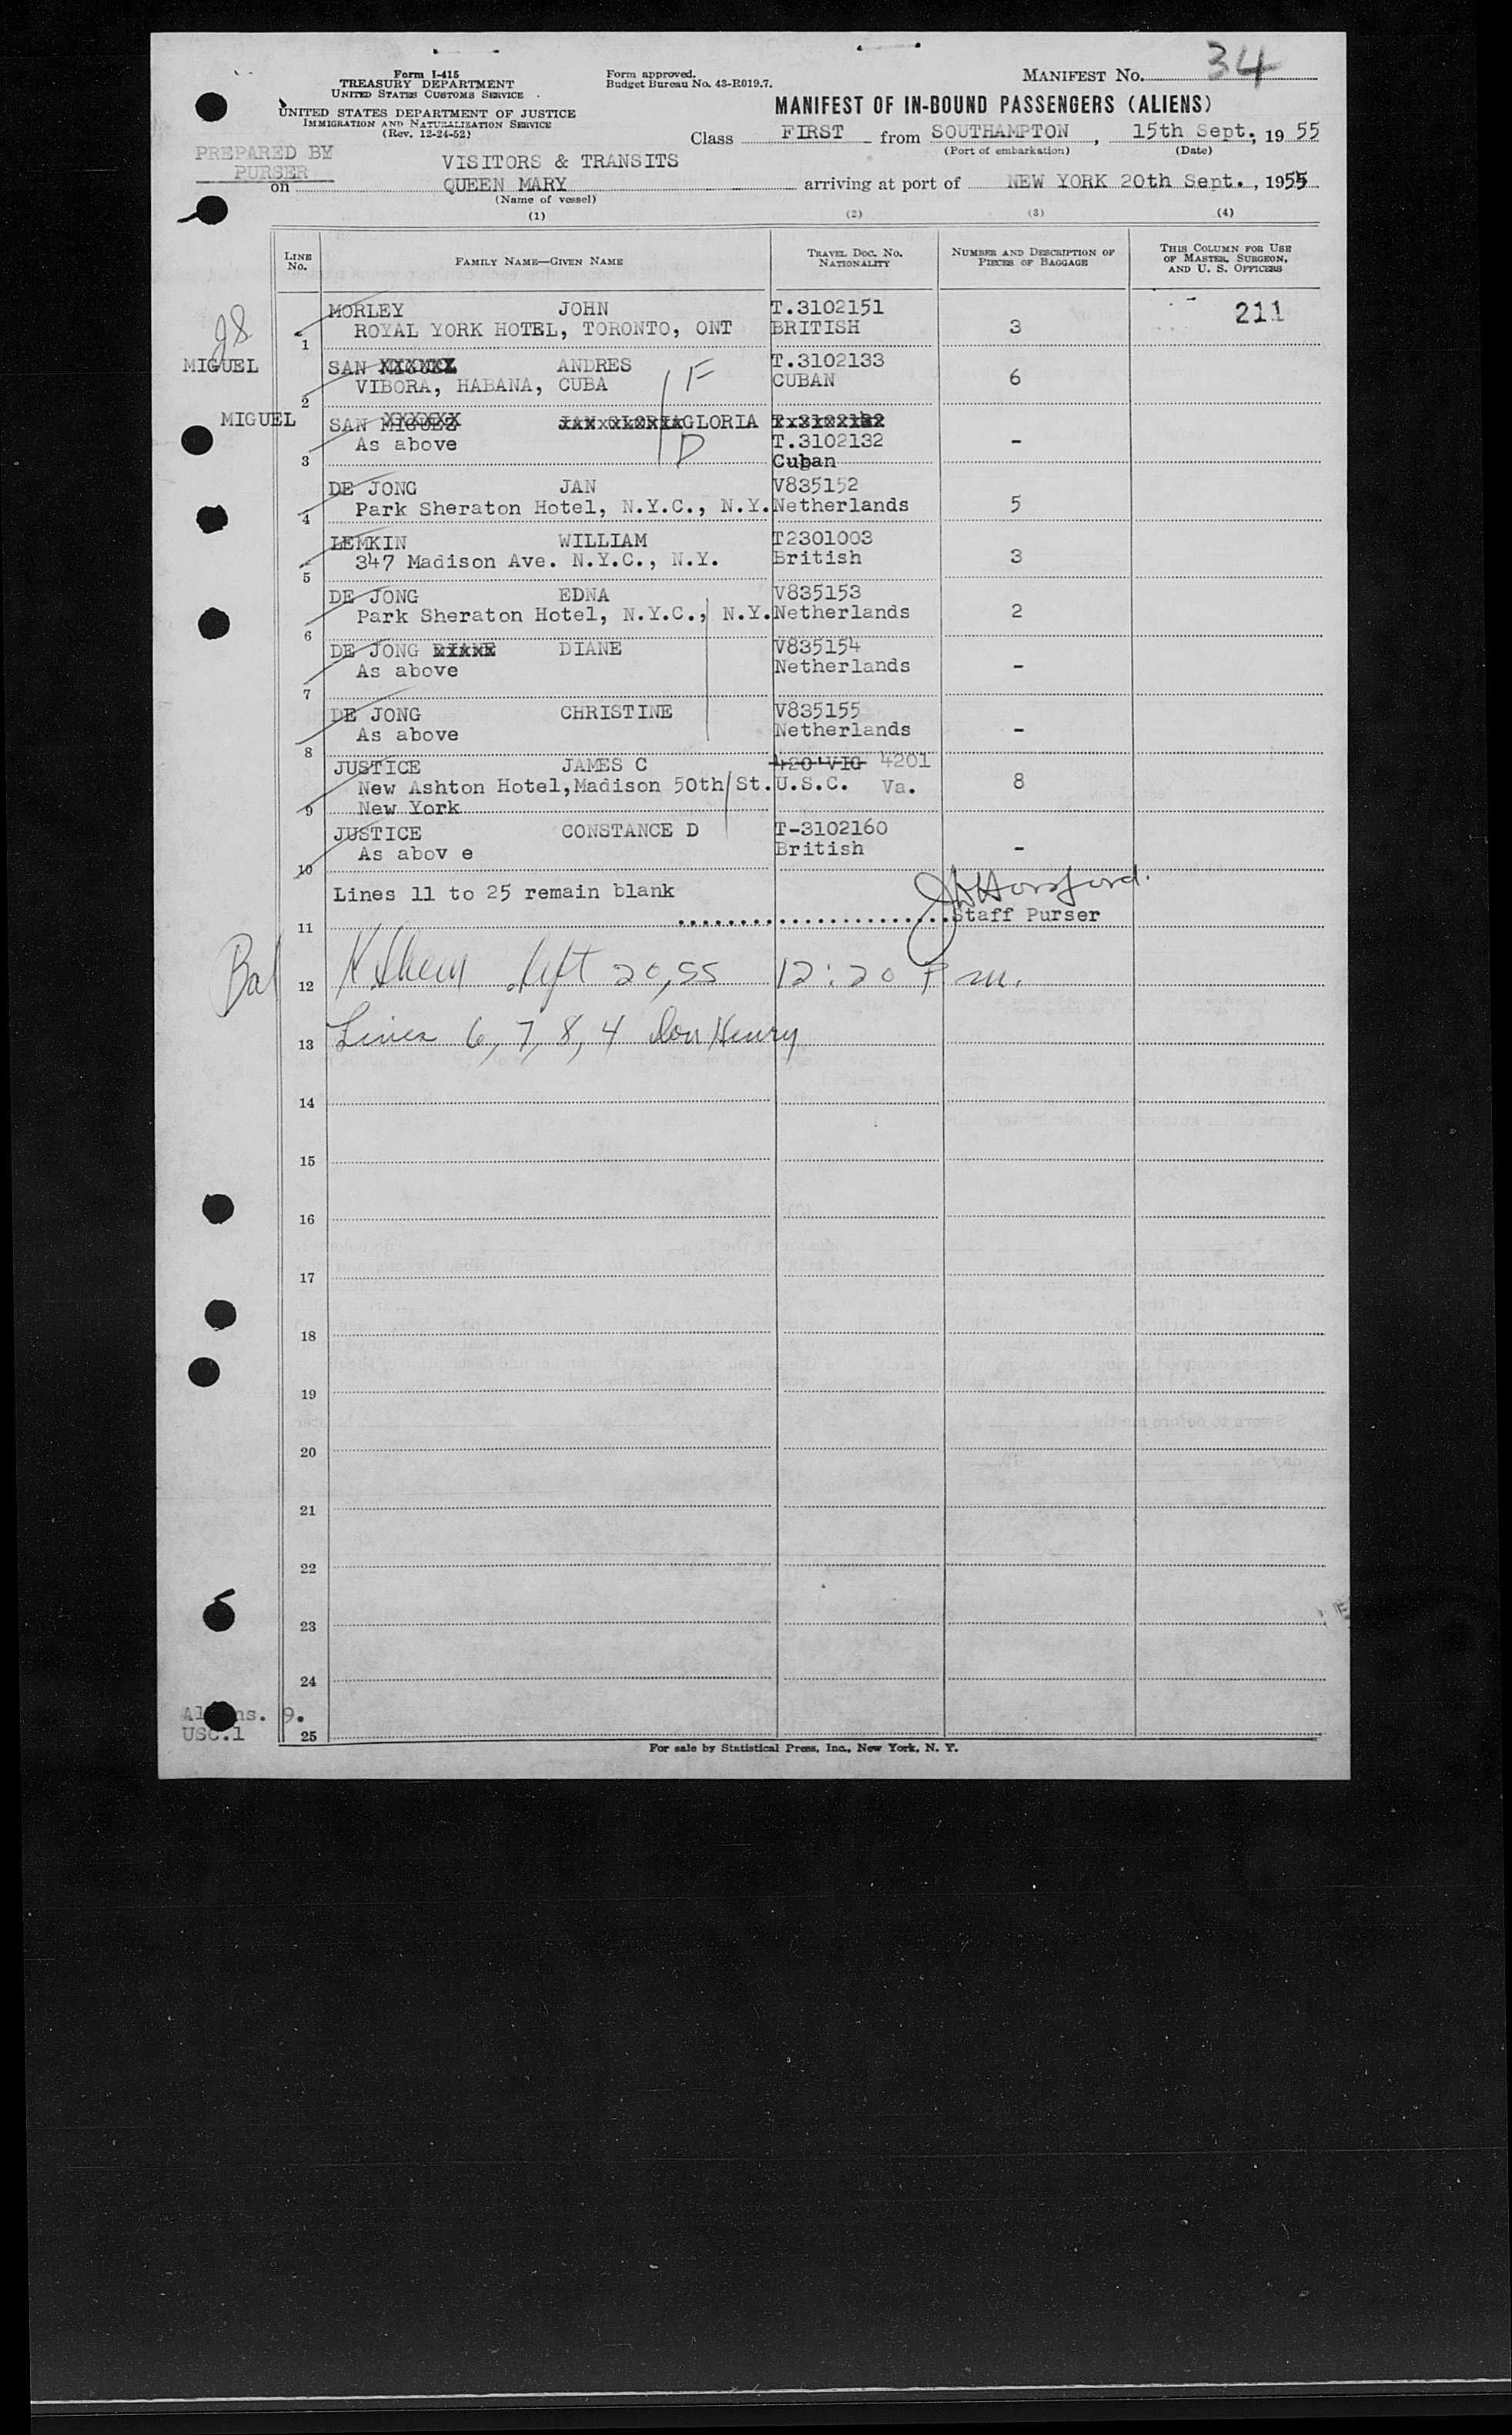 Form I-415
TREASURY DEPARTMENT
UNITED STATES CUSTOMS SERVICE
UNITED STATES DEPARTMENT OF JUSTICE
IMMIGRATION AND NATURALIZATION SERVICE
(Rev. 12-24-52)
Form approved.
Budget Bureau No. 43-R019.7.
MANIFEST No. 34
MANIFEST OF IN-BOUND PASSENGERS (ALIENS)
Class FIRST from SOUTHAMPTON, 15th Sept., 1955
(Port of embarkation) (Date)
PREPARED BY
PURSER
VISITORS & TRANSITS
on QUEEN MARY arriving at port of NEW YORK 20th Sept., 1955
(Name of vessel)
(1) (2) (3) (4)
LINE No. FAMILY NAME—GIVEN NAME TRAVEL DOC. NO. NATIONALITY NUMBER AND DESCRIPTION OF PIECES OF BAGGAGE THIS COLUMN FOR USE OF MASTER, SURGEON, AND U. S. OFFICERS
MORLEY JOHN T.3102151 211
1 ROYAL YORK HOTEL, TORONTO, ONT BRITISH 3
MIGUEL SAN ANDRES T.3102133
2 VIBORA, HABANA, CUBA F CUBAN 6
MIGUEL SAN MIGUEZ GLORIA
As above D T.3102132 -
3 Cuban
DE JONG JAN V835152
4 Park Sheraton Hotel, N.Y.C., N.Y. Netherlands 5
LEMKIN WILLIAM T2301003
5 347 Madison Ave. N.Y.C., N.Y. British 3
DE JONG EDNA V835153
6 Park Sheraton Hotel, N.Y.C., N.Y. Netherlands 2
DE JONG DIANE DIANE V835154
7 As above Netherlands -
DE JONG CHRISTINE V835155
8 As above Netherlands -
JUSTICE JAMES C 4201
New Ashton Hotel,Madison 50th St. U.S.C. Va. 8
9 New York
JUSTICE CONSTANCE D T-3102160
10 As abov e British -
Lines 11 to 25 remain blank
11 Staff Purser
12 20,55 12:20 P m.
13 Lines 6, 7, 8, 4 Henry
14
15
16
17
18
19
20
21
22
23
24
9.
USC.1 25
For sale by Statistical Press, Inc., New York, N. Y.